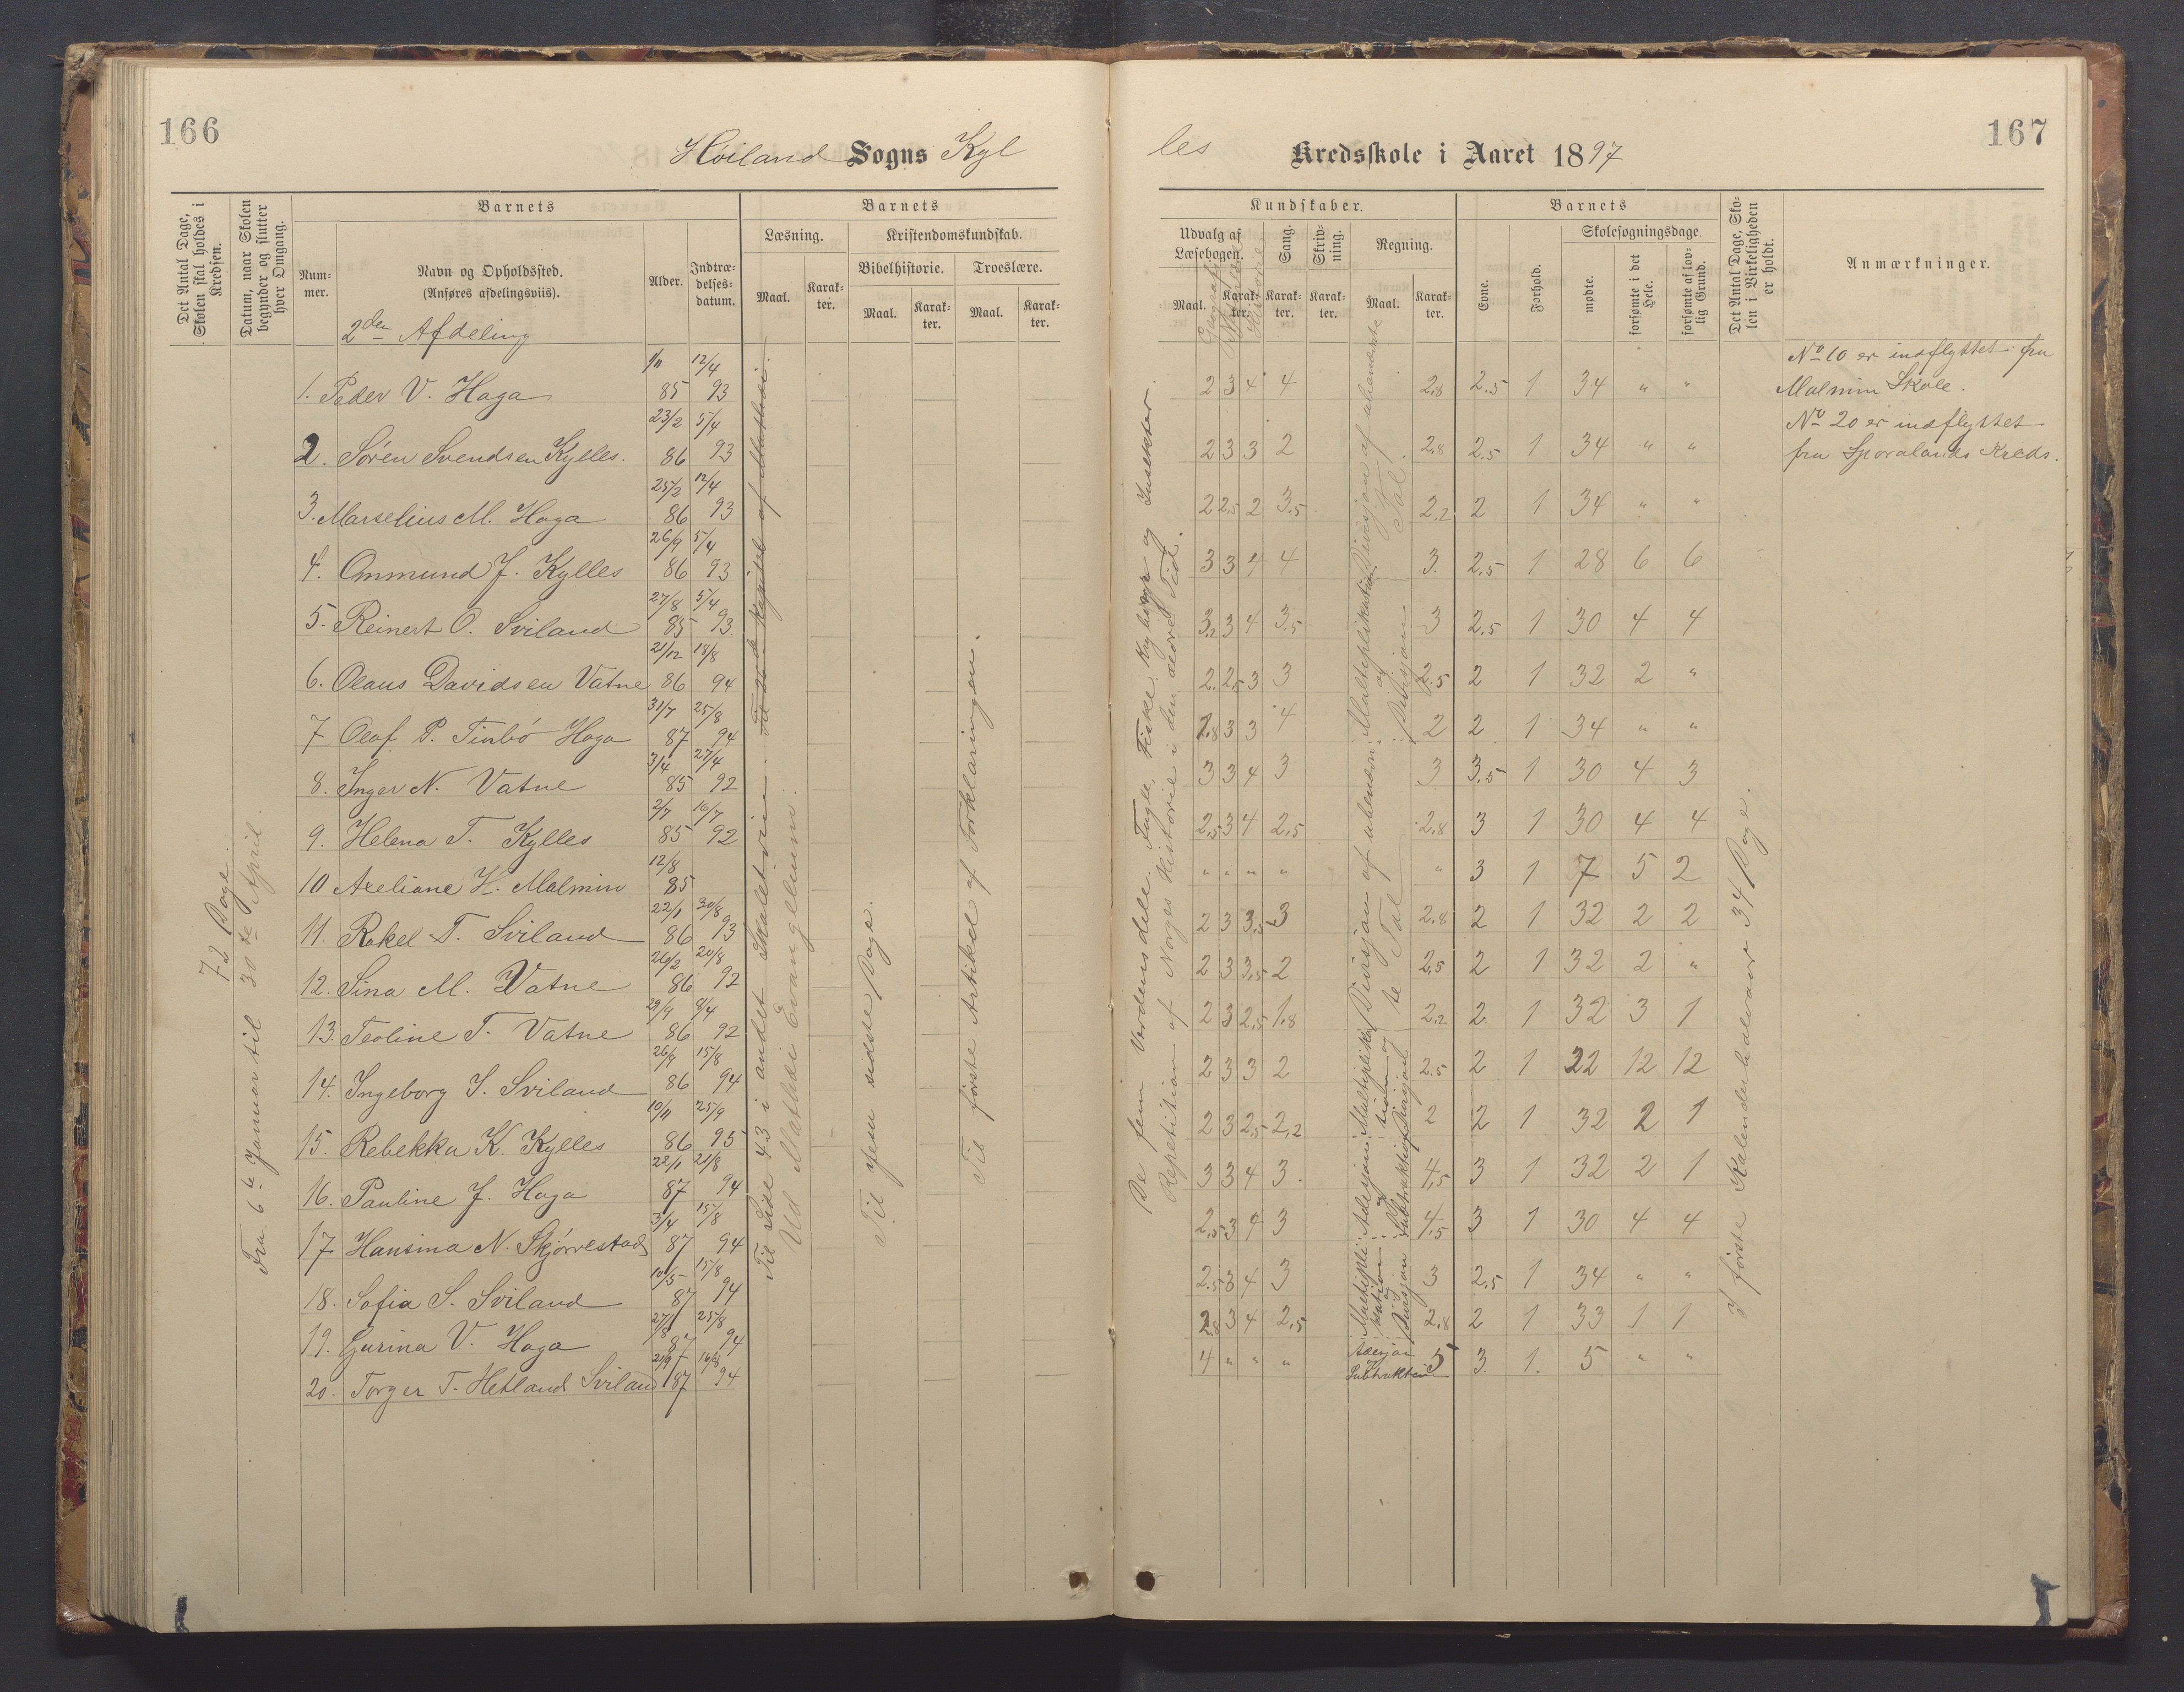 166
Høiland Sogns Kyl
Det Antal Dage, Skolen skal holdes i Kredsen.
Datum, naar Skolen begynder og slutter hver Omgang.
Barnets
Barnets
Num-mer.
Navn og Opholdssted.
(Anføres afdelingsviis).
Alder.
Indtræ-delses-datum.
Læsning.
Kristendomskundskab.
Bibelhistorie.
Troeslære.
Maal.
Karak-ter.
Maal.
Karak-ter.
Maal.
Karak-ter.
2den Afdeling
1. Peder V. Haga 1/11 85 12/4 93
2. Søren Svendsen Kylles. 23/2 86 5/4 93
3. Marselius M. Haga 25/2 86 12/4 93
4. Ommund J. Kylles 26/9 86 5/4 93
5. Reinert O. Sviland 27/8 85 5/4 93
6. Olaus Davidsen Vatne 21/12 86 18/8 94
7 Olaf P. Tinbø Haga 31/7 87 25/8 94
8. Inger N. Vatne 3/4 85 27/4 92
9. Helena T. Kylles 2/7 85 16/7 92
10 Axeliane H. Malmin 12/8 85
11. Rakel T. Sviland 22/1 86 30/8 93
12. Sina M. Vatne 26/2 86 20/8 92
13. Teoline T. Vatne 29/9 86 9/4 92
14. Ingeborg S. Sviland 26/9 86 15/8 94
15. Rebekka K. Kylles 10/11 86 25/9 95
16. Pauline J. Haga 22/1 87 21/8 94
17 Hansina N. Skjørrestad 3/4 87 15/8 94
18. Sofia S. Sviland 10/5 87 15/8 94
19. Gurina V. Haga 27/8 87 25/8 94
20. Torger T. Hetland Sviland 21/9 87 16/8 94
72 Dage.
Fra 6te Januar til 30te April.
Til Side 43 i andet Skaletrin. Til Kapitel af Mathæi.
Ud Mathæi Evangelium.
Til Jesu sidste Dage.
Til første Artikel af Forklaringen.
les Kredsskole i Aaret 1897
167
Kundskaber.
Barnets
Udvalg af Læsebogen.
Sang.
Skriv-ning.
Regning.
Maal.
Karak-ter.
Karak-ter.
Karak-ter.
Maal.
Karak-ter.
Geografi
Historie
Evne.
Forhold.
Skolesøgningsdage
mødte.
forsømte i det Hele.
forsømte af lov-lig Grund.
Det Antal Dage, Sko-len i Virkeligheden er holdt.
Anmærkninger.
2 3 4 4 2,8 2.5 1 34 " "
2 3 3 2 2,8 2.5 1 34 " "
2 2,5 2 3,5 2,2 2 1 34 " "
3 3 4 4 3. 2,5 1 28 6 6
3,2 3 4 3,5 3 2,5 1 30 4 4
2. 2,5 3 3 2,5 2 1 32 2 "
2,8 3 3 4 2 2 1 34 " "
3 3 4 3 3 3.5 1 30 4 3
2,5 3 4 2,5 2,8 3 1 30 4 4
" " " " " 3 1 7 5 2
2 3 3,5 3 2,8 2 1 32 2 2
2 3 3,5 2 2,5 2 1 32 2 "
2 3 2,5 1,8 2,2 2 1 32 3 1
2 3 3 2 2,5 2 1 22 12 12
2 3 2,5 2,2 2 2 1 32 2 1
3 3 4 3. 4,5 3 1 32 2 1
2,5 3 4 3 4,5 3 1 30 4 4
2,5 3 4 3 3 2,5 1 34 " "
2,8 3 4 2,5 2,8 2 1 33 1 1
4 " " " 5 3. 1. 5 " "
De fem Verdensdele. Fugle, Fiske, Krybdyr og Insekter.
Repetition af Norges Historie i den ældre Tid.
Divisjon af ubenævnte Tal.
Adisjon og Subtraktion
I første Kalenderhalvaar 34 Dage.
No 10 er indflyttet fra
Malmin Skole.
No 20 er indflyttet
fra Sporalands Kreds.